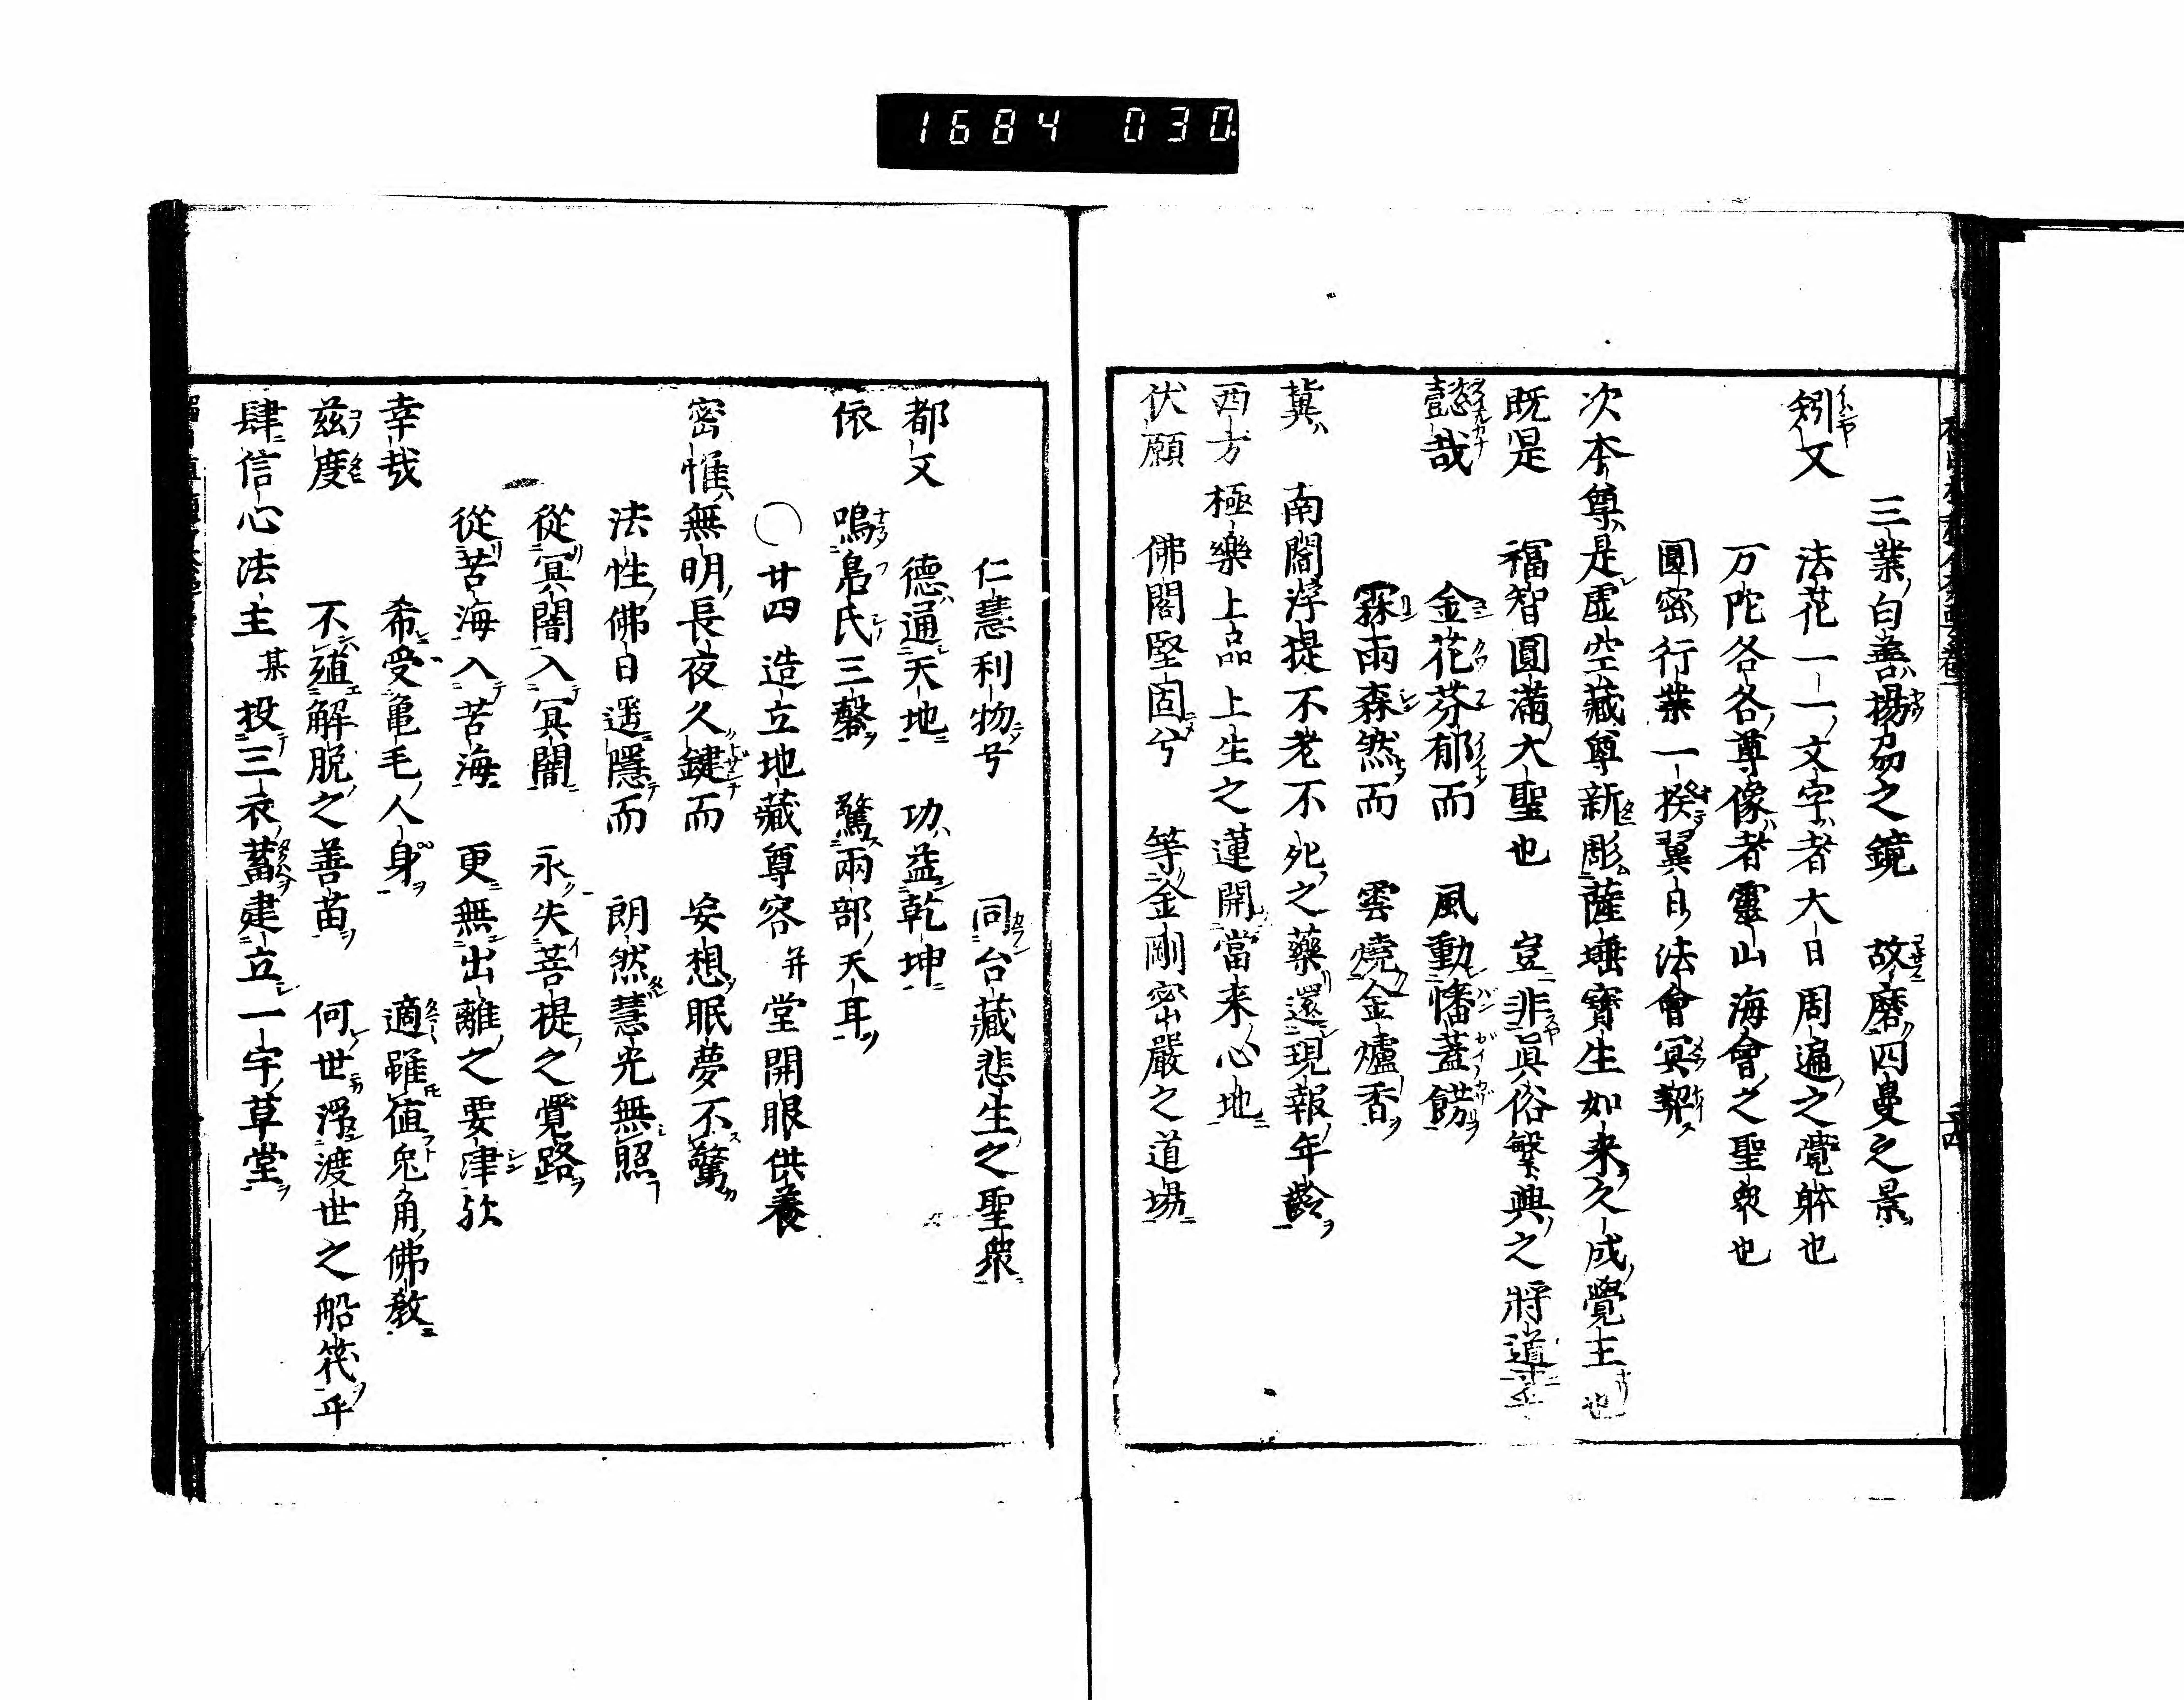 1684 030
三業白善揚劦之鏡 故磨四曼之景
矧又 法花一一文字者大日周遍之覺躰也
万陀各各尊像者靈山海會之聖衆也
圓密行業一揆翼自法會冥契
次本尊是虚空藏尊新彫薩埵寳生如来久成覺王也
既是 福智圓滿大聖也 豈非眞俗繁興之將道乎
懿哉 金花芬郁而 風動幡蓋餝
霖雨森然而 雲燒金爐香
冀 南閻浮提不老不死之藥還現報年齡
西方極樂上品上生之蓮開當来心地
伏願 佛閣堅固兮 等金剛密嚴之道場
仁慧利物兮 同台藏悲生之聖衆
都又 德通天地 功益乾坤
依 鳴鳧氏三磬 驚兩部天耳
○廿四 造立地藏尊容并堂開眼供養
密惟無明長夜久鍵而 妄想眠夢不驚
法性佛日遥隱而 朗然慧光無照
從冥闇入冥闇 永失菩提之覺路
從苦海入苦海 更無出離之要津欤
幸哉 希受亀毛人身 適雖值兎角佛教
茲度 不殖解脱之善苗 何世浮渡世之船筏乎
肆信心法主某投三衣蓄建立一宇草堂